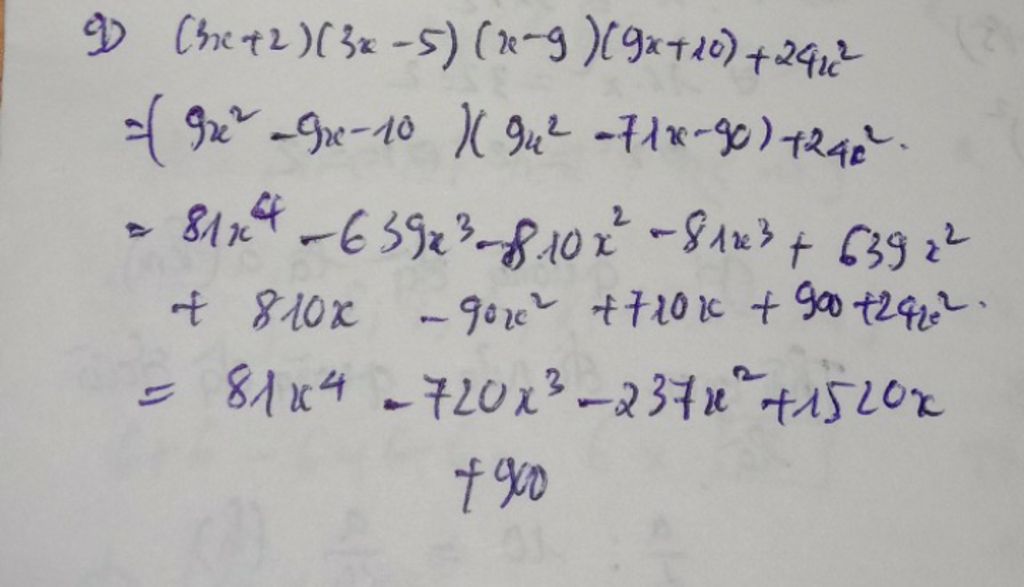 g) (3x+2)(3x-5)(x-9)(9x+10)+24x²
=(9x²-9x-10)(9x²-71x-90)+24x².
= 81x⁴-639x³-810x²-81x³+639x²
+ 810x -90x² +710x + 900+24x².
= 81x⁴-720x³-237x²+1520x
+900